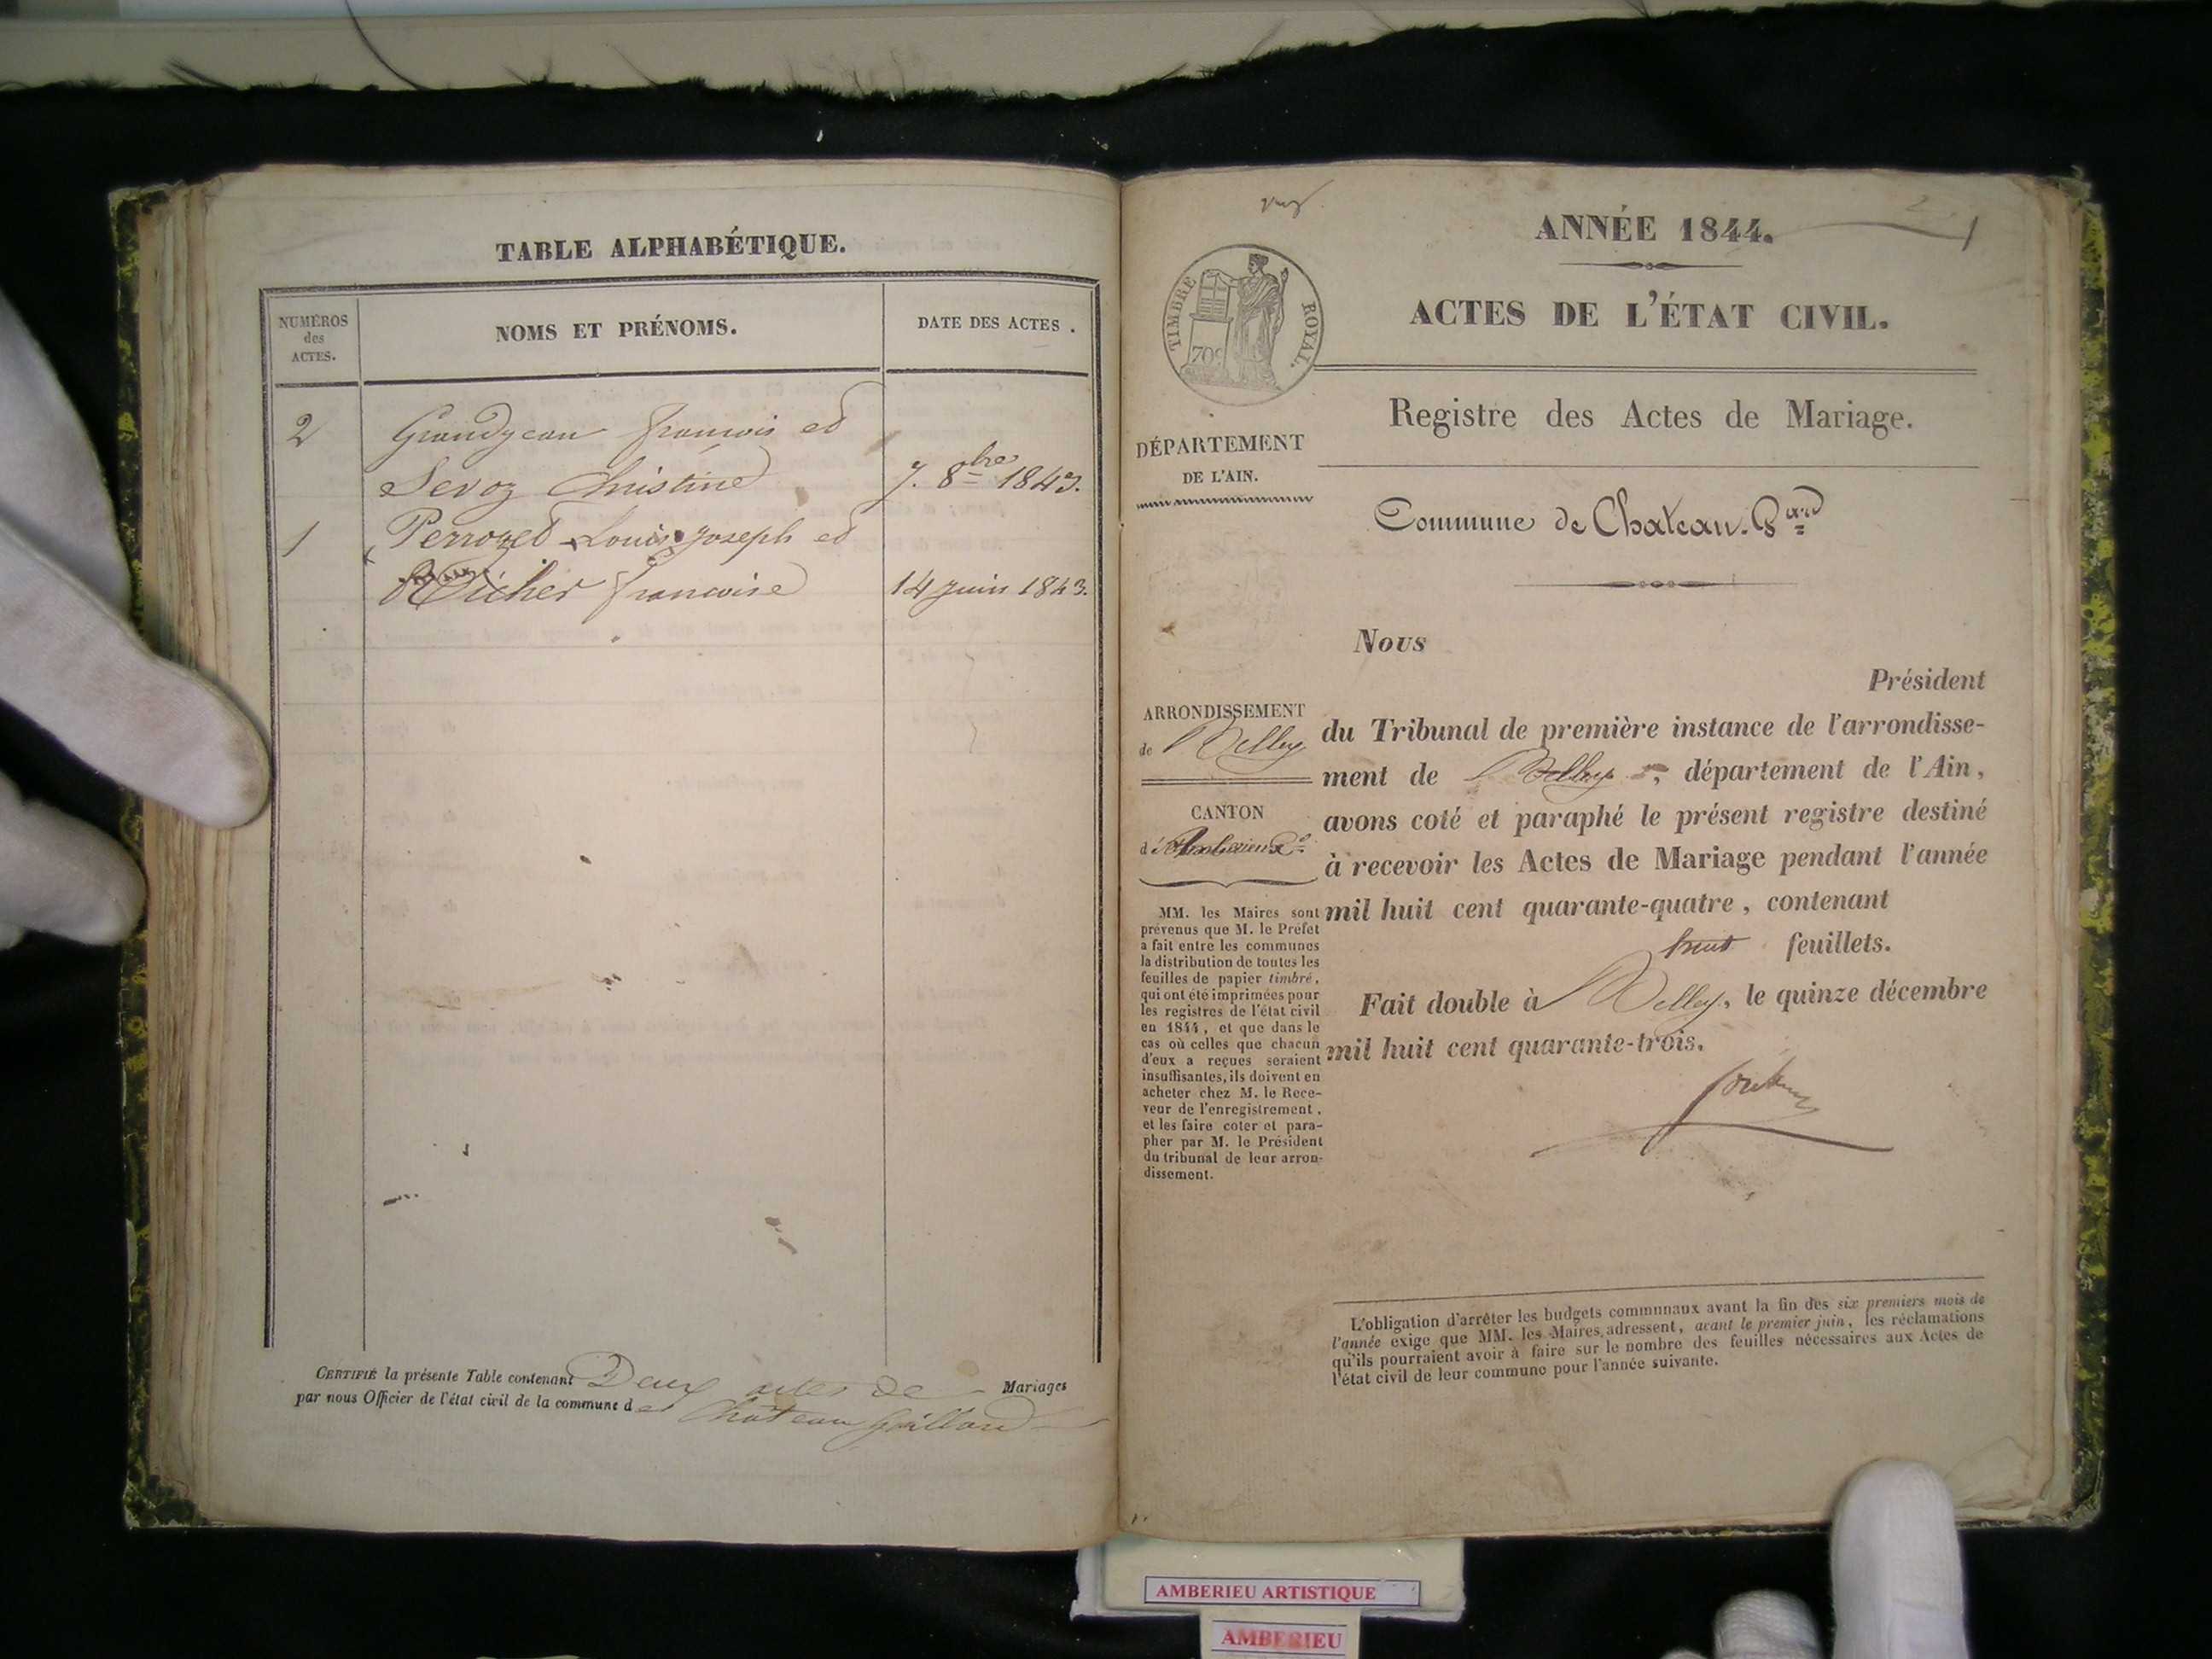 TABLE ALPHABÉTIQUE.
NUMÉROS
des
ACTES.
NOMS ET PRÉNOMS.
DATE DES ACTES.
2 Grandjean francois et
Sevoz Christine 7. 8bre 1843.
1 Perrozet Louis Joseph et
Richer francoise 14 juin 1843.
CERTIFIÉ la présente Table contenant Deux actes de Mariages
par nous Officier de l'état civil de la commune de Château Gaillard
ANNÉE 1844.
1
TIMBRE ROYAL.
70c
ACTES DE L'ÉTAT CIVIL.
Registre des Actes de Mariage.
DÉPARTEMENT
DE L'AIN.
Commune de Chateau-Gard
ARRONDISSEMENT
de Belley
CANTON
d'Amberieux
MM. les Maires sont
prévenus que M. le Préfet
a fait entre les communes
la distribution de toutes les
feuilles de papier timbré,
qui ont été imprimées pour
les registres de l'état civil
en 1844, et que dans le
cas où celles que chacun
d'eux a reçues seraient
insuffisantes, ils doivent en
acheter chez M. le Rece-
veur de l'enregistrement,
et les faire coter et para-
pher par M. le Président
du tribunal de leur arron-
dissement.
Nous
Président
du Tribunal de première instance de l'arrondisse-
ment de Belley, département de l'Ain,
avons coté et paraphé le présent registre destiné
à recevoir les Actes de Mariage pendant l'année
mil huit cent quarante-quatre, contenant
huit feuillets.
Fait double à Belley, le quinze décembre
mil huit cent quarante-trois.
L'obligation d'arrêter les budgets communaux avant la fin des six premiers mois de
l'année exige que MM. les Maires adressent, avant le premier juin, les réclamations
qu'ils pourraient avoir à faire sur le nombre des feuilles nécessaires aux Actes de
l'état civil de leur commune pour l'année suivante.
AMBERIEU ARTISTIQUE
AMBERIEU